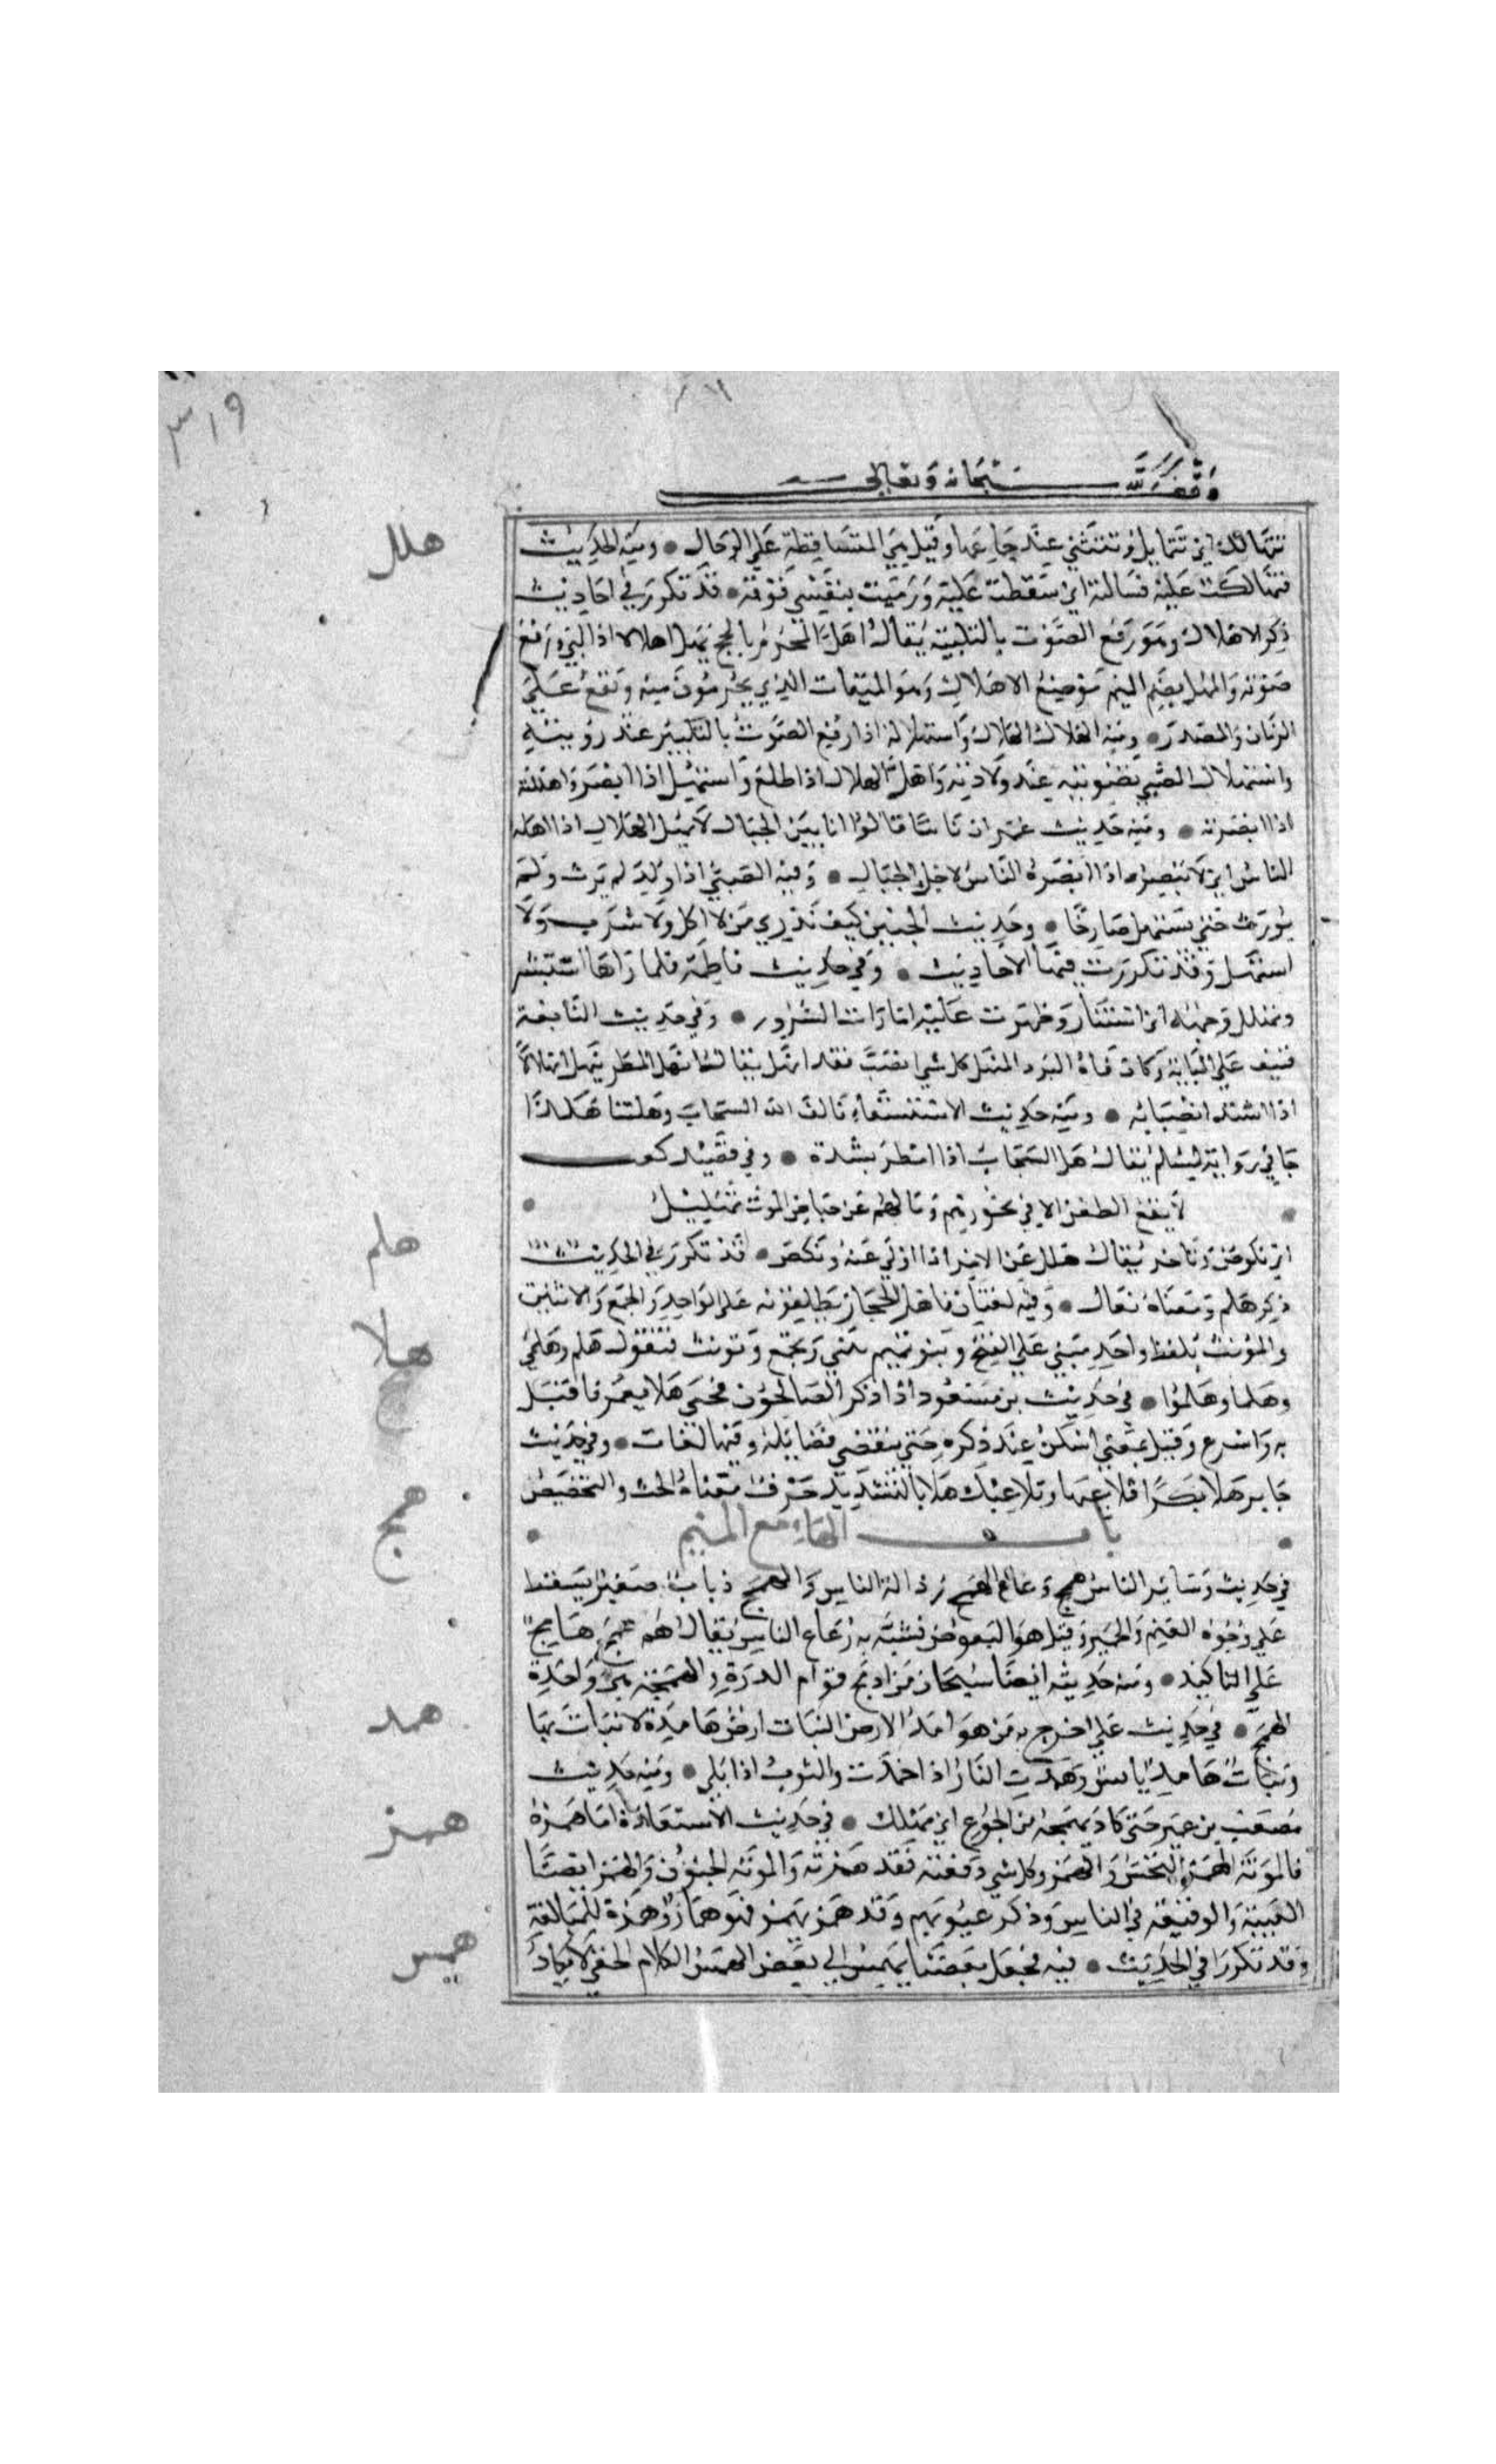 ٣١٩
وقف لله سبحانه وتعالى
تتهالك اي تتمايل وتتثني عند جماعها وقيل هي المتساقطة على الرجال ● ومنه الحديث
هلل
فتهالكت عليه فسالته اي سقطت عليه ورميت بنفسي فوقه ● قد تكرر في احاديث
ذكر الاهلال وهو رفع الصوت بالتلبية يقال اهل المحرم بالحج يهل اهلالا اذا لبى ورفع
صوته والمهل بضم الميم موضع الاهلال وهو الميقات الذي يحرمون منه ويقع على
الزمان والمصدر ● ومنه اهلال الهلال واستهلاله اذا رفع الصوت بالتكبير عند رويته
واستهلال الصبي تصويته عند ولادته واهل الهلال اذا طلع واستهل اذا ابصر واهللته
اذا ابصرته ● ومنه حديث عمر ان ناسا قالوا انا بين الجبال لا نهل الهلال اذا اهله
الناس اي لا نبصره اذا ابصره الناس لاجل الجبال ● وفيه الصبي اذا ولد لم يرث ولم
يورث حتى يستهل صارخا ● وحديث الجنين كيف ندي من لا اكل ولا شرب ولا
استهل وقد تكررت فيهما الاحاديث ● وفي حديث فاطمة فلما راها استبشر
وتهلل وجهه اي استنار وظهرت عليه امارات السرور ● وفي حديث النابغة
فنيف على المائة وكان فاه البرد المنهل كل شي انصب فقد انهل يقال انهل المطر ينهل انهلالا
اذا اشتد انصبابه ● ومنه حديث الاستسقاء فالف الله السحاب وهلتنا هكذا
جا في رواية لمسلم يقال هل السحاب اذا امطر بشدة ● وفي قصيد كعب
لا يقع الطعن الا في نحورهم وما لهم عن حياض الموت تهليل
اي نكوص وتاخر يقال هلل عن الامر اذا ولى عنه ونكص ● قد تكرر في الحديث
هلم
ذكر هلم ومعناه تعال ● وفيه لغتان فاهل الحجاز يطلقونه على الواحد والجمع والاثنين
والمونث بلفظ واحد مبني على الفتح وبنو تميم تثني وتجمع وتونث فتقول هلم وهلمي
هلا
وهلما وهلموا ● في حديث بن مسعود اذا ذكر الصالحون فحي هلا بعمر فاقبل
به واسرع وقيل بمعنى اسكن عند ذكره حتى تنقضي فضايله وفيها لغات ● وفي حديث
جابر هلا بكرا تلاعبها وتلاعبك هلا بالتشديد حرف معناه الحث والتحضيض
باب الهاء مع الميم
همج
في حديث وساير الناس همج رعاع الهمج رذالة الناس والهمج ذباب صغير يسقط
على وجوه الغنم والحمير وقيل هو البعوض فشبه به رعاع الناس يقال هم همج هامج
على التاكيد ● ومنه حديثه ايضا سبحان من ادمج قوام الذرة والهمجة هي واحدة
الهمج ● في حديث علي اخرج به من هوامد الارض النبات ارض هامدة لا نبات بها
همد
ونبات هامد يابس وهمدت النار اذا خمدت والثوب اذا بلي ● ومنه حديث
مصعب بن عمير حتى كاد يهمد من الجوع اي يهلك ● في حديث الاستعاذة اما همزه
همز
فالموتة الهمز النخس والهمز وكل شي دفعته فقد همزته والموتة الجنون والهمز ايضا
الغيبة والوقيعة في الناس وذكر عيوبهم وقد همز يهمز فهو هماز وهمزة للمبالغة
وقد تكرر في الحديث ● فيه فجعل بعضنا يهمس الى بعض الهمس الكلام الخفي لا يكاد
همس